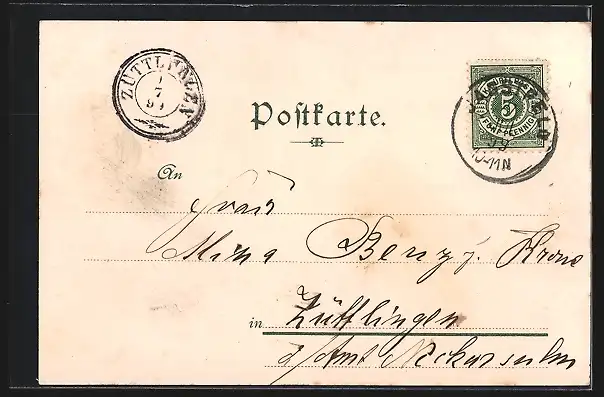 ZÜTTLINGEN
1
7
Postkarte.
5
FÜNF PFENNIG
99
10-11N
An
Frau
Mina Benz z. Krone
in Züttlingen
o/Amt Neckarsulm